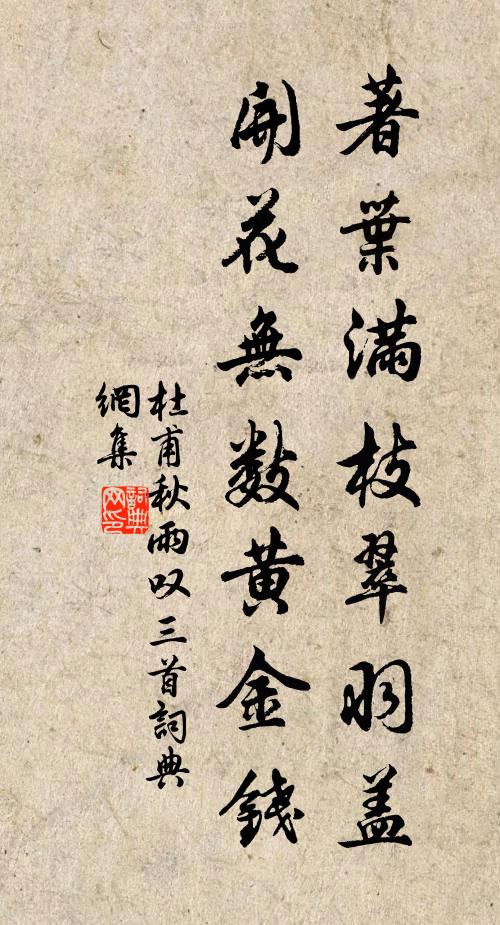 著葉滿枝翠羽盖
開花無数黄金錢
杜甫秋雨叹三首詞典
網集
詞典
网印